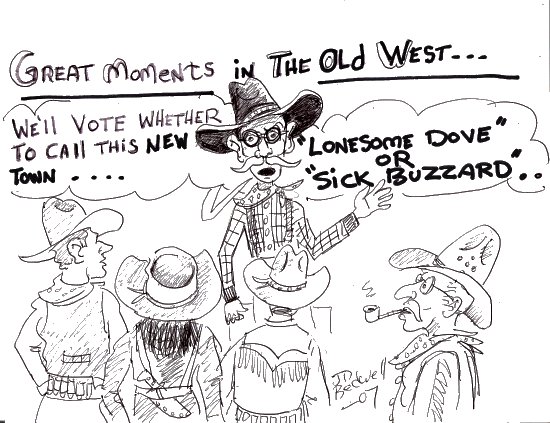 GREAT MOMENTS IN THE OLD WEST...
WE'LL VOTE WHETHER
TO CALL THIS NEW
TOWN ....
"LONESOME DOVE"
OR
"SICK BUZZARD"..
JD
07